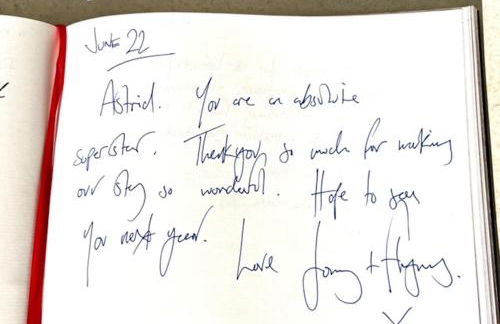 JUNE 22
Astrid. You are an absolute
superstar. Thank you so much for making
our stay so wonderful. Hope to see
you next year.
Love + X